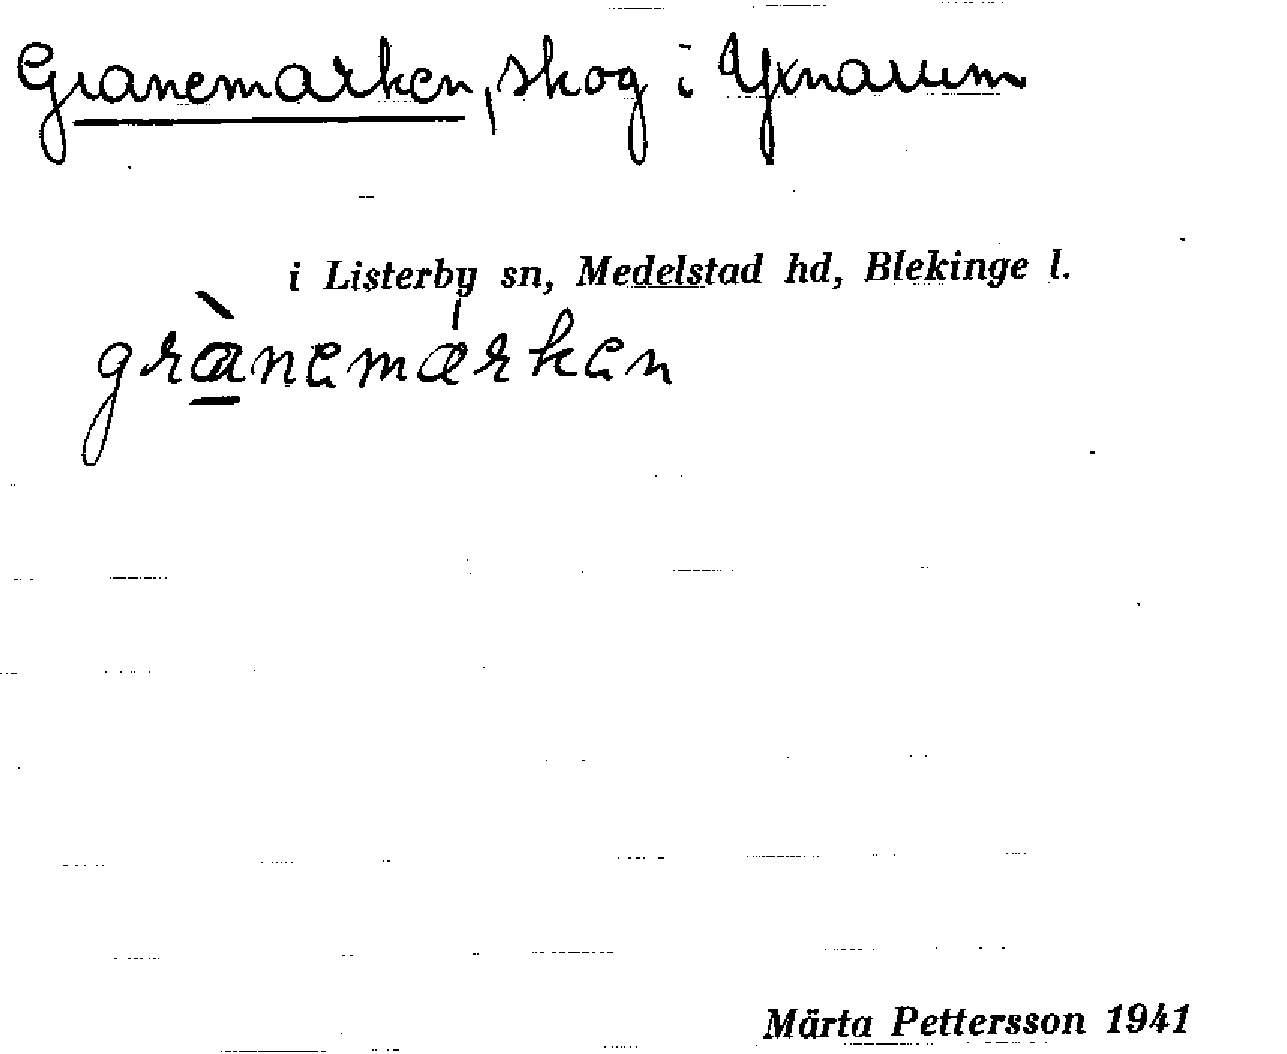 Granemarken, skog i Yxnarum
i Listerby sn, Medelstad hd, Blekinge l.
grànemarken
Märta Pettersson 1941